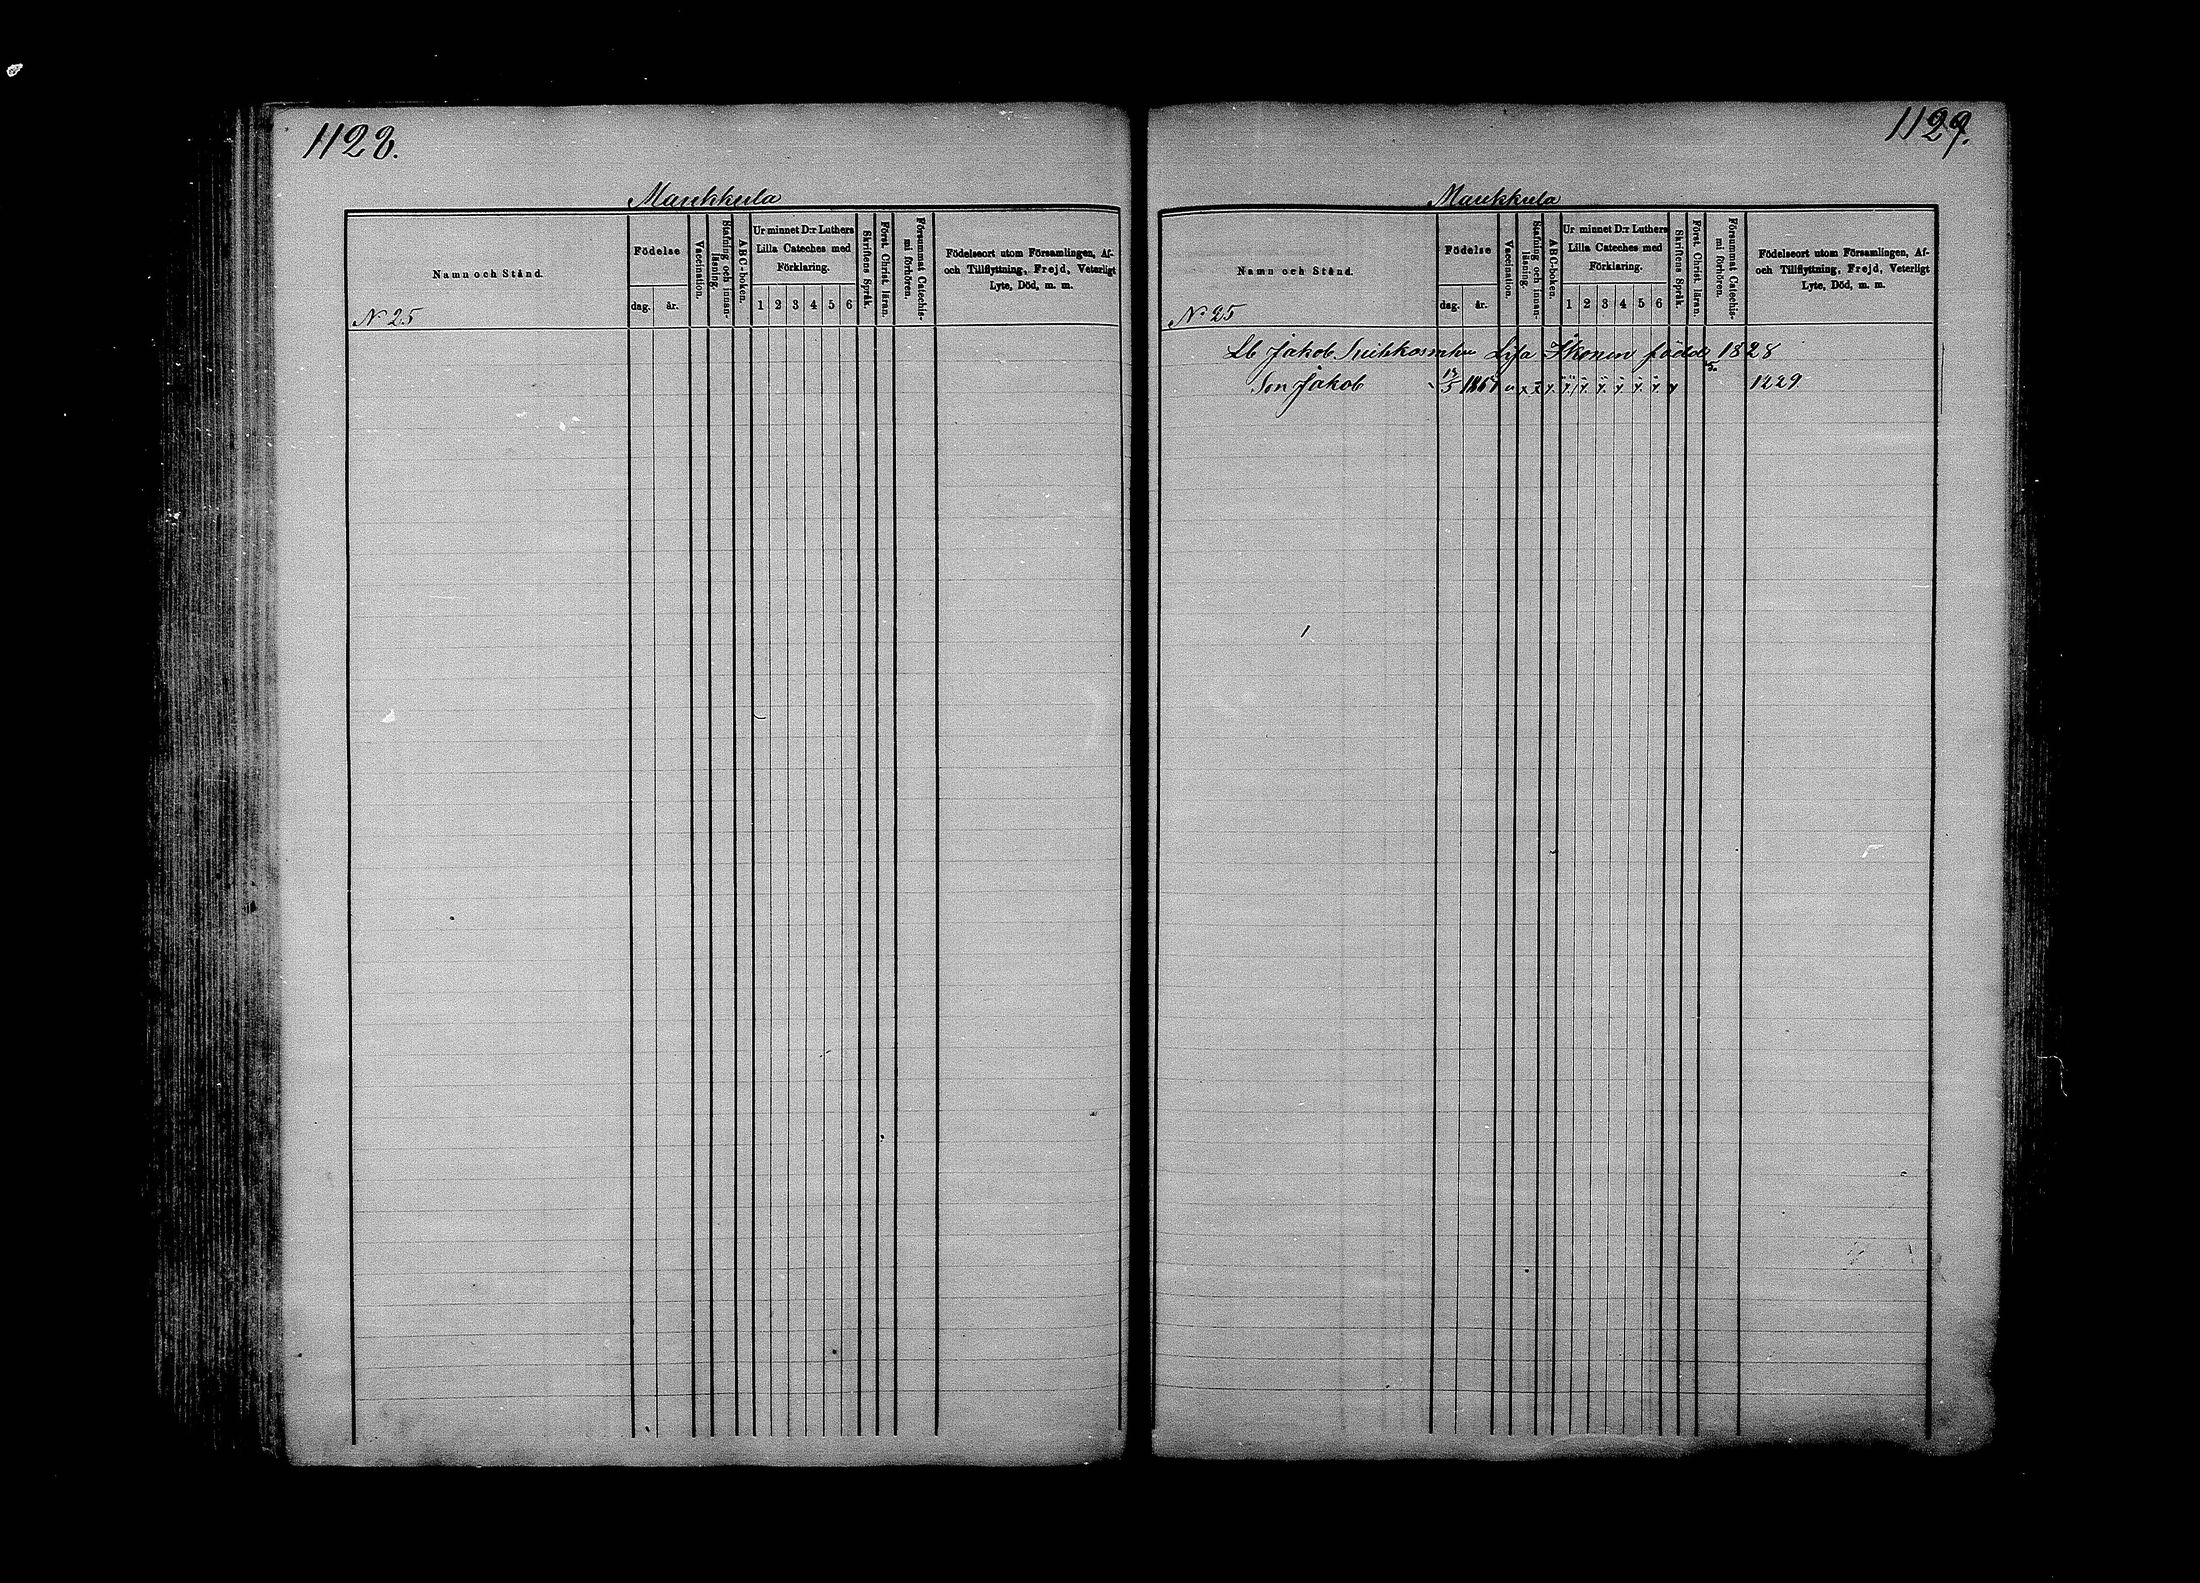 1128.
Maukkula
Namn och Stånd.
Födelse
dag.
år.
Vaccination.
Stafning och innan-
läsning.
ABC-boken.
Ur minnet D:r Luthers
Lilla Cateches med
Förklaring.
1 2 3 4 5 6
Skriftens Språk.
Först. Christ. läran.
Försummat Catechis-
mi förhören.
Födelseort utom Församlingen, Af-
och Tillflyttning, Frejd, Veterligt
Lyte, Död, m. m.
N 25
1129.
Maukkula
Namn och Stånd.
Födelse
dag.
år.
Vaccination.
Stafning och innan-
läsning.
ABC-boken.
Ur minnet D:r Luthers
Lilla Cateches med
Förklaring.
1 2 3 4 5 6
Skriftens Språk.
Först. Christ. läran.
Försummat Catechis-
mi förhören.
Födelseort utom Församlingen, Af-
och Tillflyttning, Frejd, Veterligt
Lyte, Död, m. m.
N 25
Lb Jakob Lisa Ikonen född 1828
Son Jakob 1229